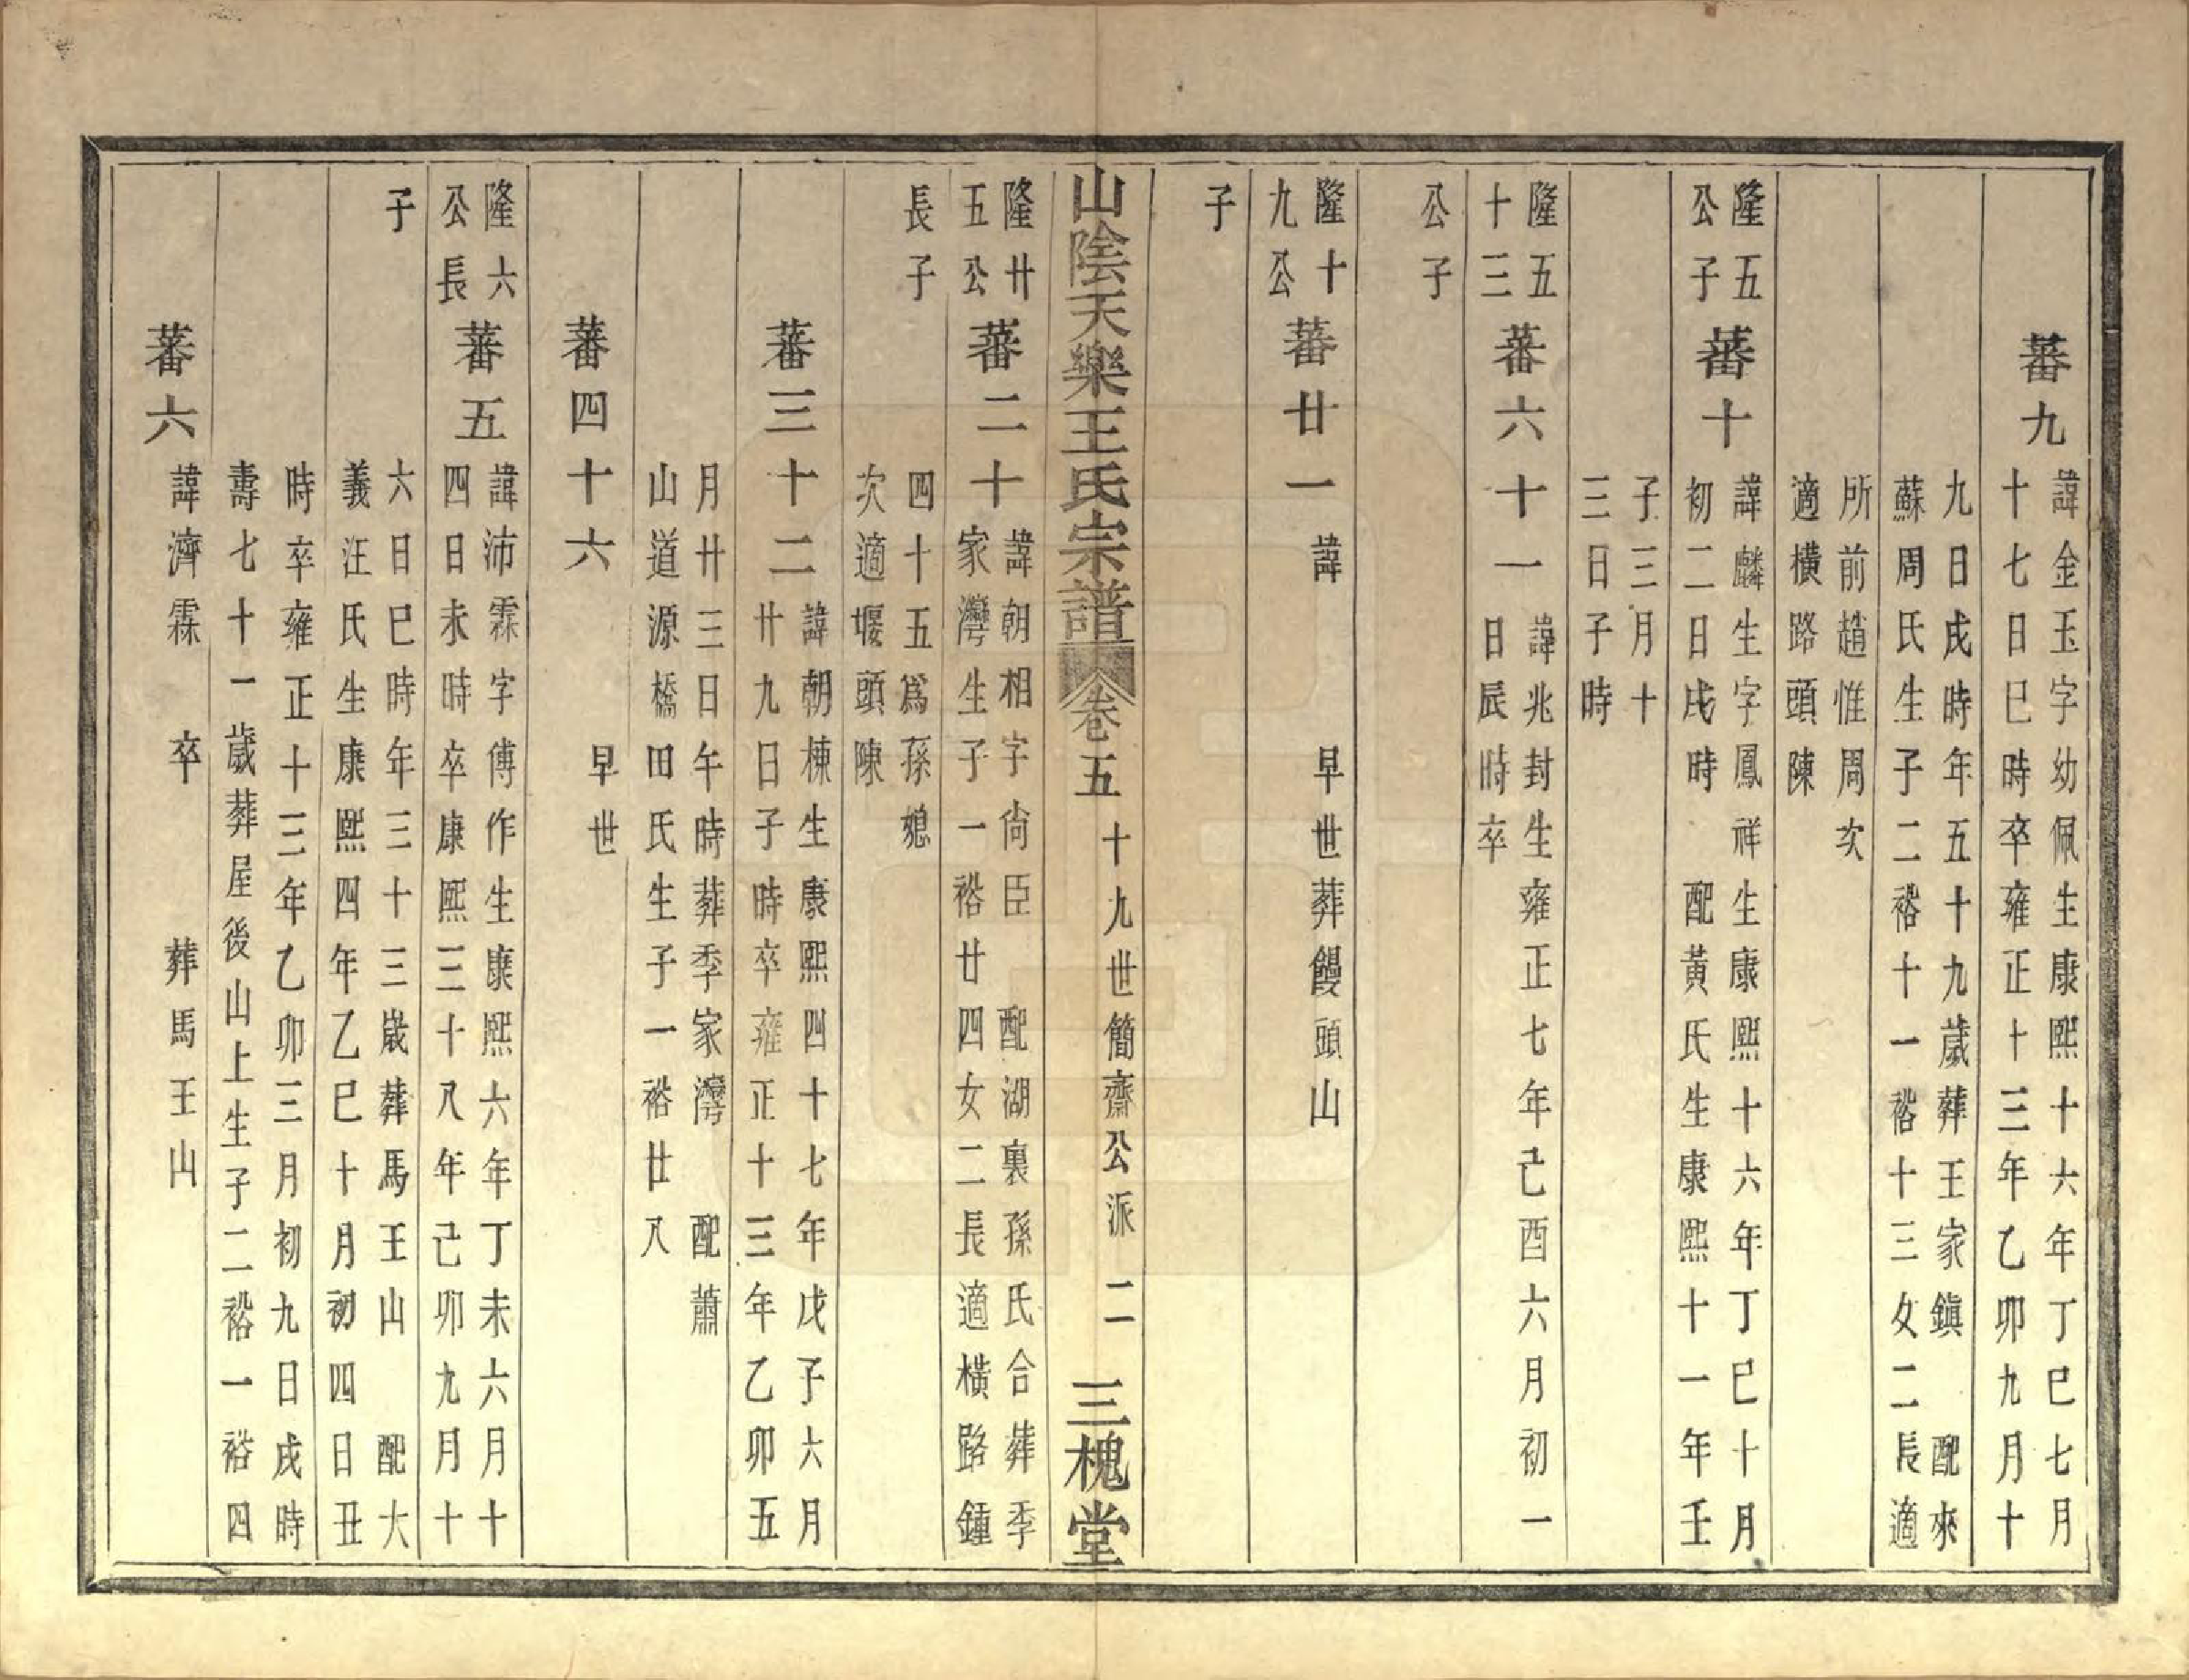 蕃九
諱金玉字幼佩生康熙十六年丁巳七月
十七日巳時卒雍正十三年乙卯九月十
九日戌時年五十九歲葬王家鎭　配來
蘇周氏生子二裕十一裕十三女二長適
所前趙惟周次
適橫路頭陳
隆五
公子
蕃十
諱麟生字鳳祥生康熙十六年丁巳十月
初二日戌時　配黃氏生康熙十一年壬
子三月十
三日子時
隆五
十三
蕃六十一
諱兆封生雍正七年己酉六月初一
日辰時卒
公子
隆十
九公
蕃廿一
諱　早世葬饅頭山
子
山陰天樂王氏宗譜　卷五　十九世簡齋公派　二　三槐堂
隆廿
五公
蕃二十
諱朝相字尙臣　配湖裏孫氏合葬季
家灣生子一裕廿四女二長適橫路鍾
長子
四十五爲孫媳
次適堰頭陳
蕃三十二
諱朝棟生康熙四十七年戊子六月
廿九日子時卒雍正十三年乙卯五
月廿三日午時葬季家灣　配蕭
山道源橋田氏生子一裕廿八
蕃四十六
早世
隆六
公長
蕃五
諱沛霖字傅作生康熙六年丁未六月十
四日未時卒康熙三十八年己卯九月十
子
六日巳時年三十三歲葬馬王山　配大
義汪氏生康熙四年乙巳十月初四日丑
時卒雍正十三年乙卯三月初九日戌時
壽七十一歲葬屋後山上生子二裕一裕四
蕃六
諱濟霖　卒　葬馬王山